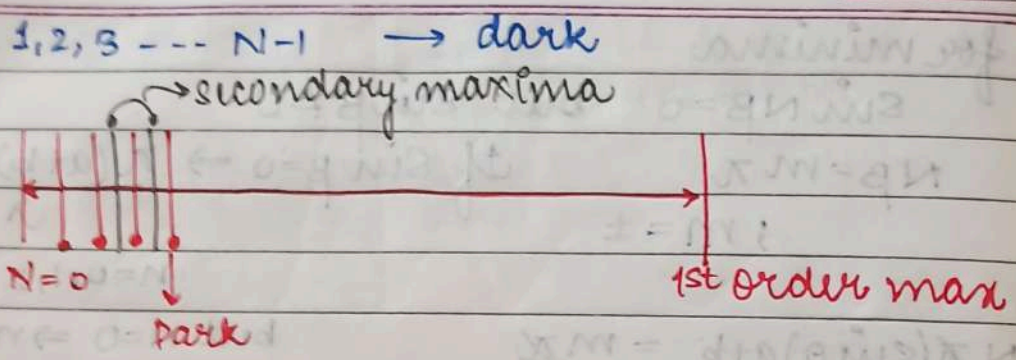 1, 2, 3 --- N-1 → dark
secondary maxima
N=0
1st order max
Dark